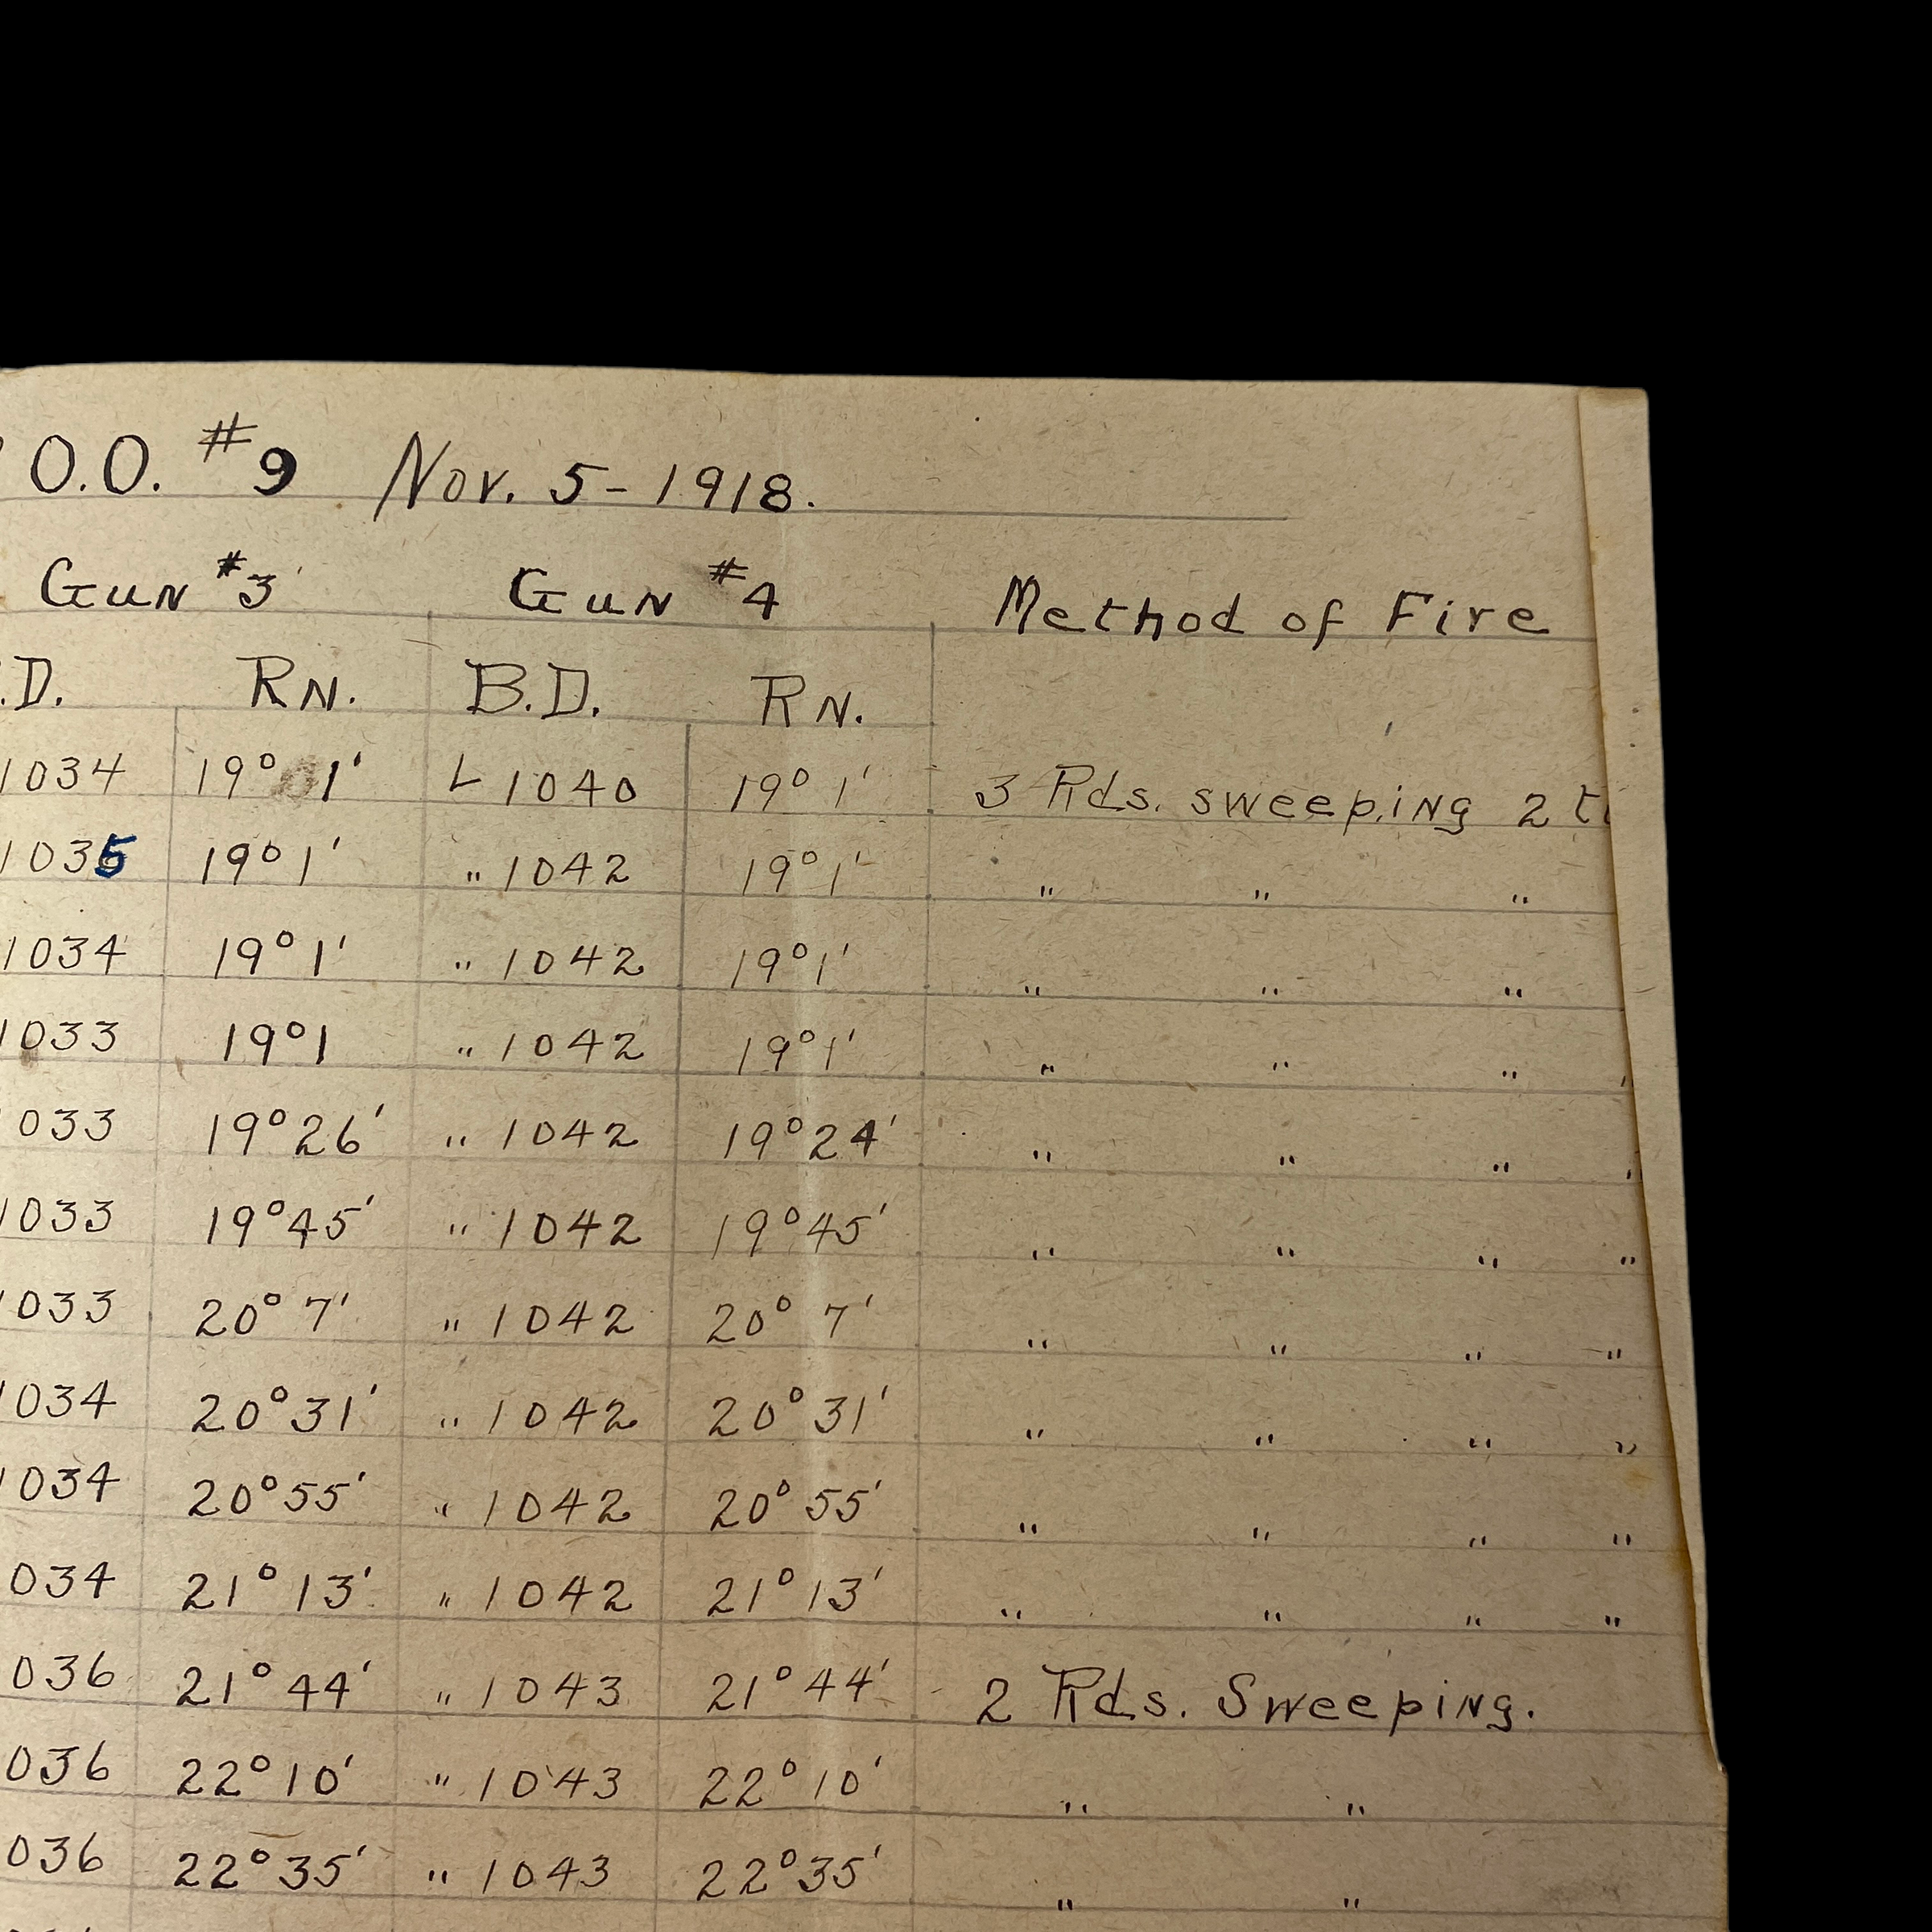 O.O. #9 Nov. 5-1918.
Gun #3 Gun #4 Method of Fire
.D. RN. B.D. RN.
1034 19° 1' L 1040 19° 1' 3 Rds. sweeping 2
1035 19° 1' " 1042 19° 1' " " "
1034 19° 1' " 1042 19° 1' " " "
1033 19° 1 " 1042 19° 1' " " " "
033 19° 26' " 1042 19° 24' " " " "
1033 19° 45' " 1042 19° 45' " " " "
1033 20° 7' " 1042 20° 7' " " " "
1034 20° 31' " 1042 20° 31' " " " "
1034 20° 55' " 1042 20° 55' " " " "
034 21° 13' " 1042 21° 13' " " " "
036 21° 44' " 1043 21° 44' 2 Rds. Sweeping.
036 22° 10' " 1043 22° 10' " "
036 22° 35' " 1043 22° 35' " "